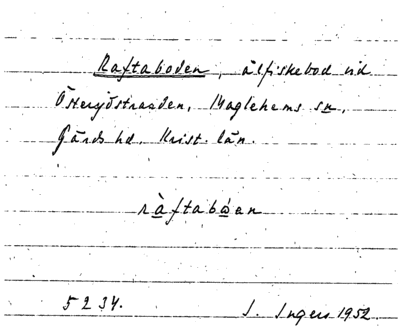 Raftaboden, ålfiskebod vid
Östersjöstranden, Maglehems sn,
Gärds hd, Krist. län.
ràftabǿen
5234.
I. Ingers 1952.